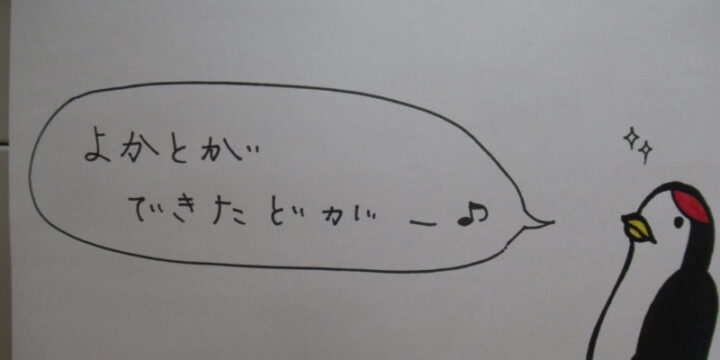 よかとが
できたどがー♪